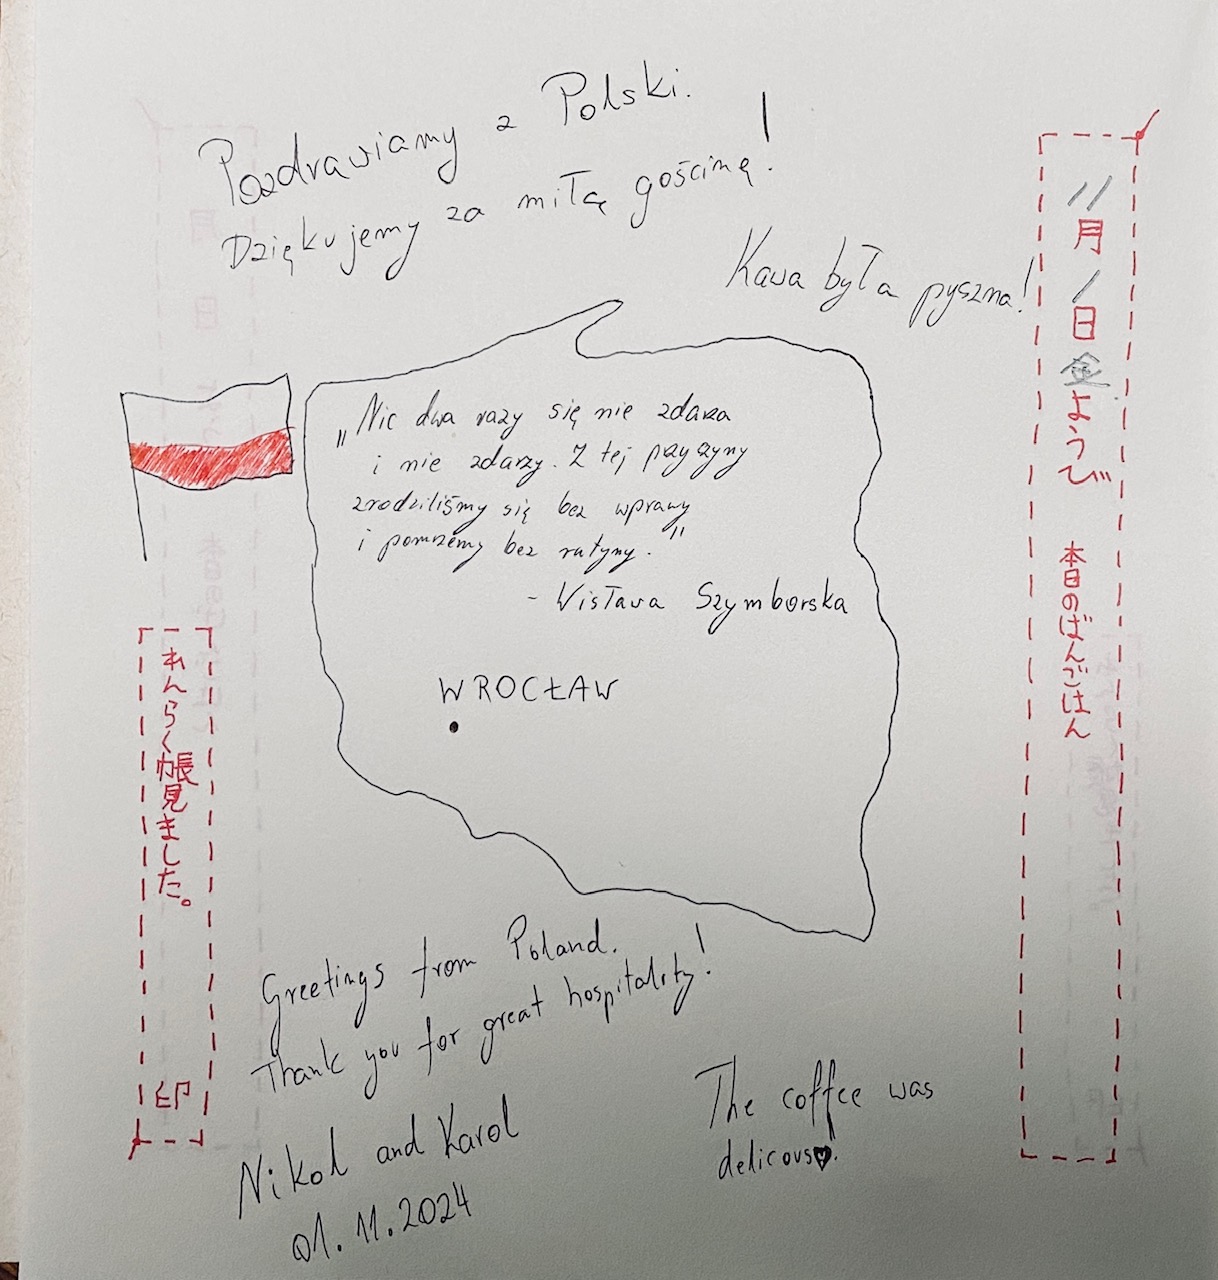 Pozdrawiamy z Polski.
Dziękujemy za miłą gościnę!
Kawa była pyszna!
11月1日金ようび 本日のばんごはん
„Nic dwa razy się nie zdarza
i nie zdarzy. Z tej przyczyny
zrodziliśmy się bez wprawy
i pomrzemy bez rutyny."
- Wisława Szymborska
WROCŁAW
れんらく帳見ました。
印
Greetings from Poland.
Thank you for great hospitality!
The coffee was
delicous♥.
Nikol and Karol
01.11.2024